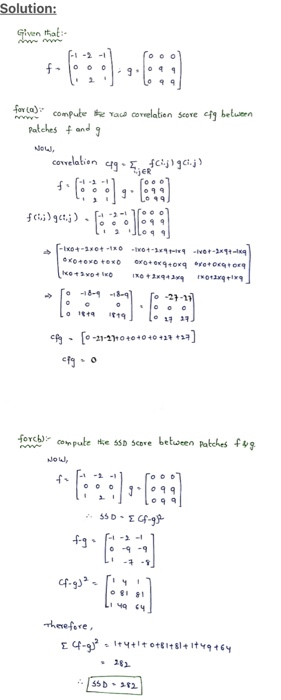 Solution:
Given that:-
f = [-1 -2 -1
0 0 0
1 2 1] ; g = [0 0 0
0 9 9
0 9 9]
for(a):- compute the raw correlation score cfg between
patches f and g
Now,
correlation cfg = Σ i,j∈R f(i,j) g(i,j)
f = [-1 -2 -1
0 0 0
1 2 1] g = [0 0 0
0 9 9
0 9 9]
f(i,j) g(i,j) = [-1 -2 -1
0 0 0
1 2 1] [0 0 0
0 9 9
0 9 9]
⇒ [-1x0+-2x0+-1x0 -1x0+-2x9+-1x9 -1x0+-2x9+-1x9
0x0+0x0+0x0 0x0+0x9+0x9 0x0+0x9+0x9
1x0+2x0+1x0 1x0+2x9+1x9 1x0+2x9+1x9]
⇒ [0 -18-9 -18-9
0 0 0
0 18+9 18+9] = [0 -27 -27
0 0 0
0 27 27]
cfg = [0-27-27+0+0+0+0+27+27]
cfg = 0
for(b):- compute the SSD score between patches f & g
Now,
f = [-1 -2 -1
0 0 0
1 2 1] g = [0 0 0
0 9 9
0 9 9]
∴ SSD = Σ (f-g)²
f-g = [-1 -2 -1
0 -9 -9
1 -7 -8]
(f-g)² = [1 4 1
0 81 81
1 49 64]
Therefore,
Σ (f-g)² = 1+4+1+0+81+81+1+49+64
= 282
∴ SSD = 282